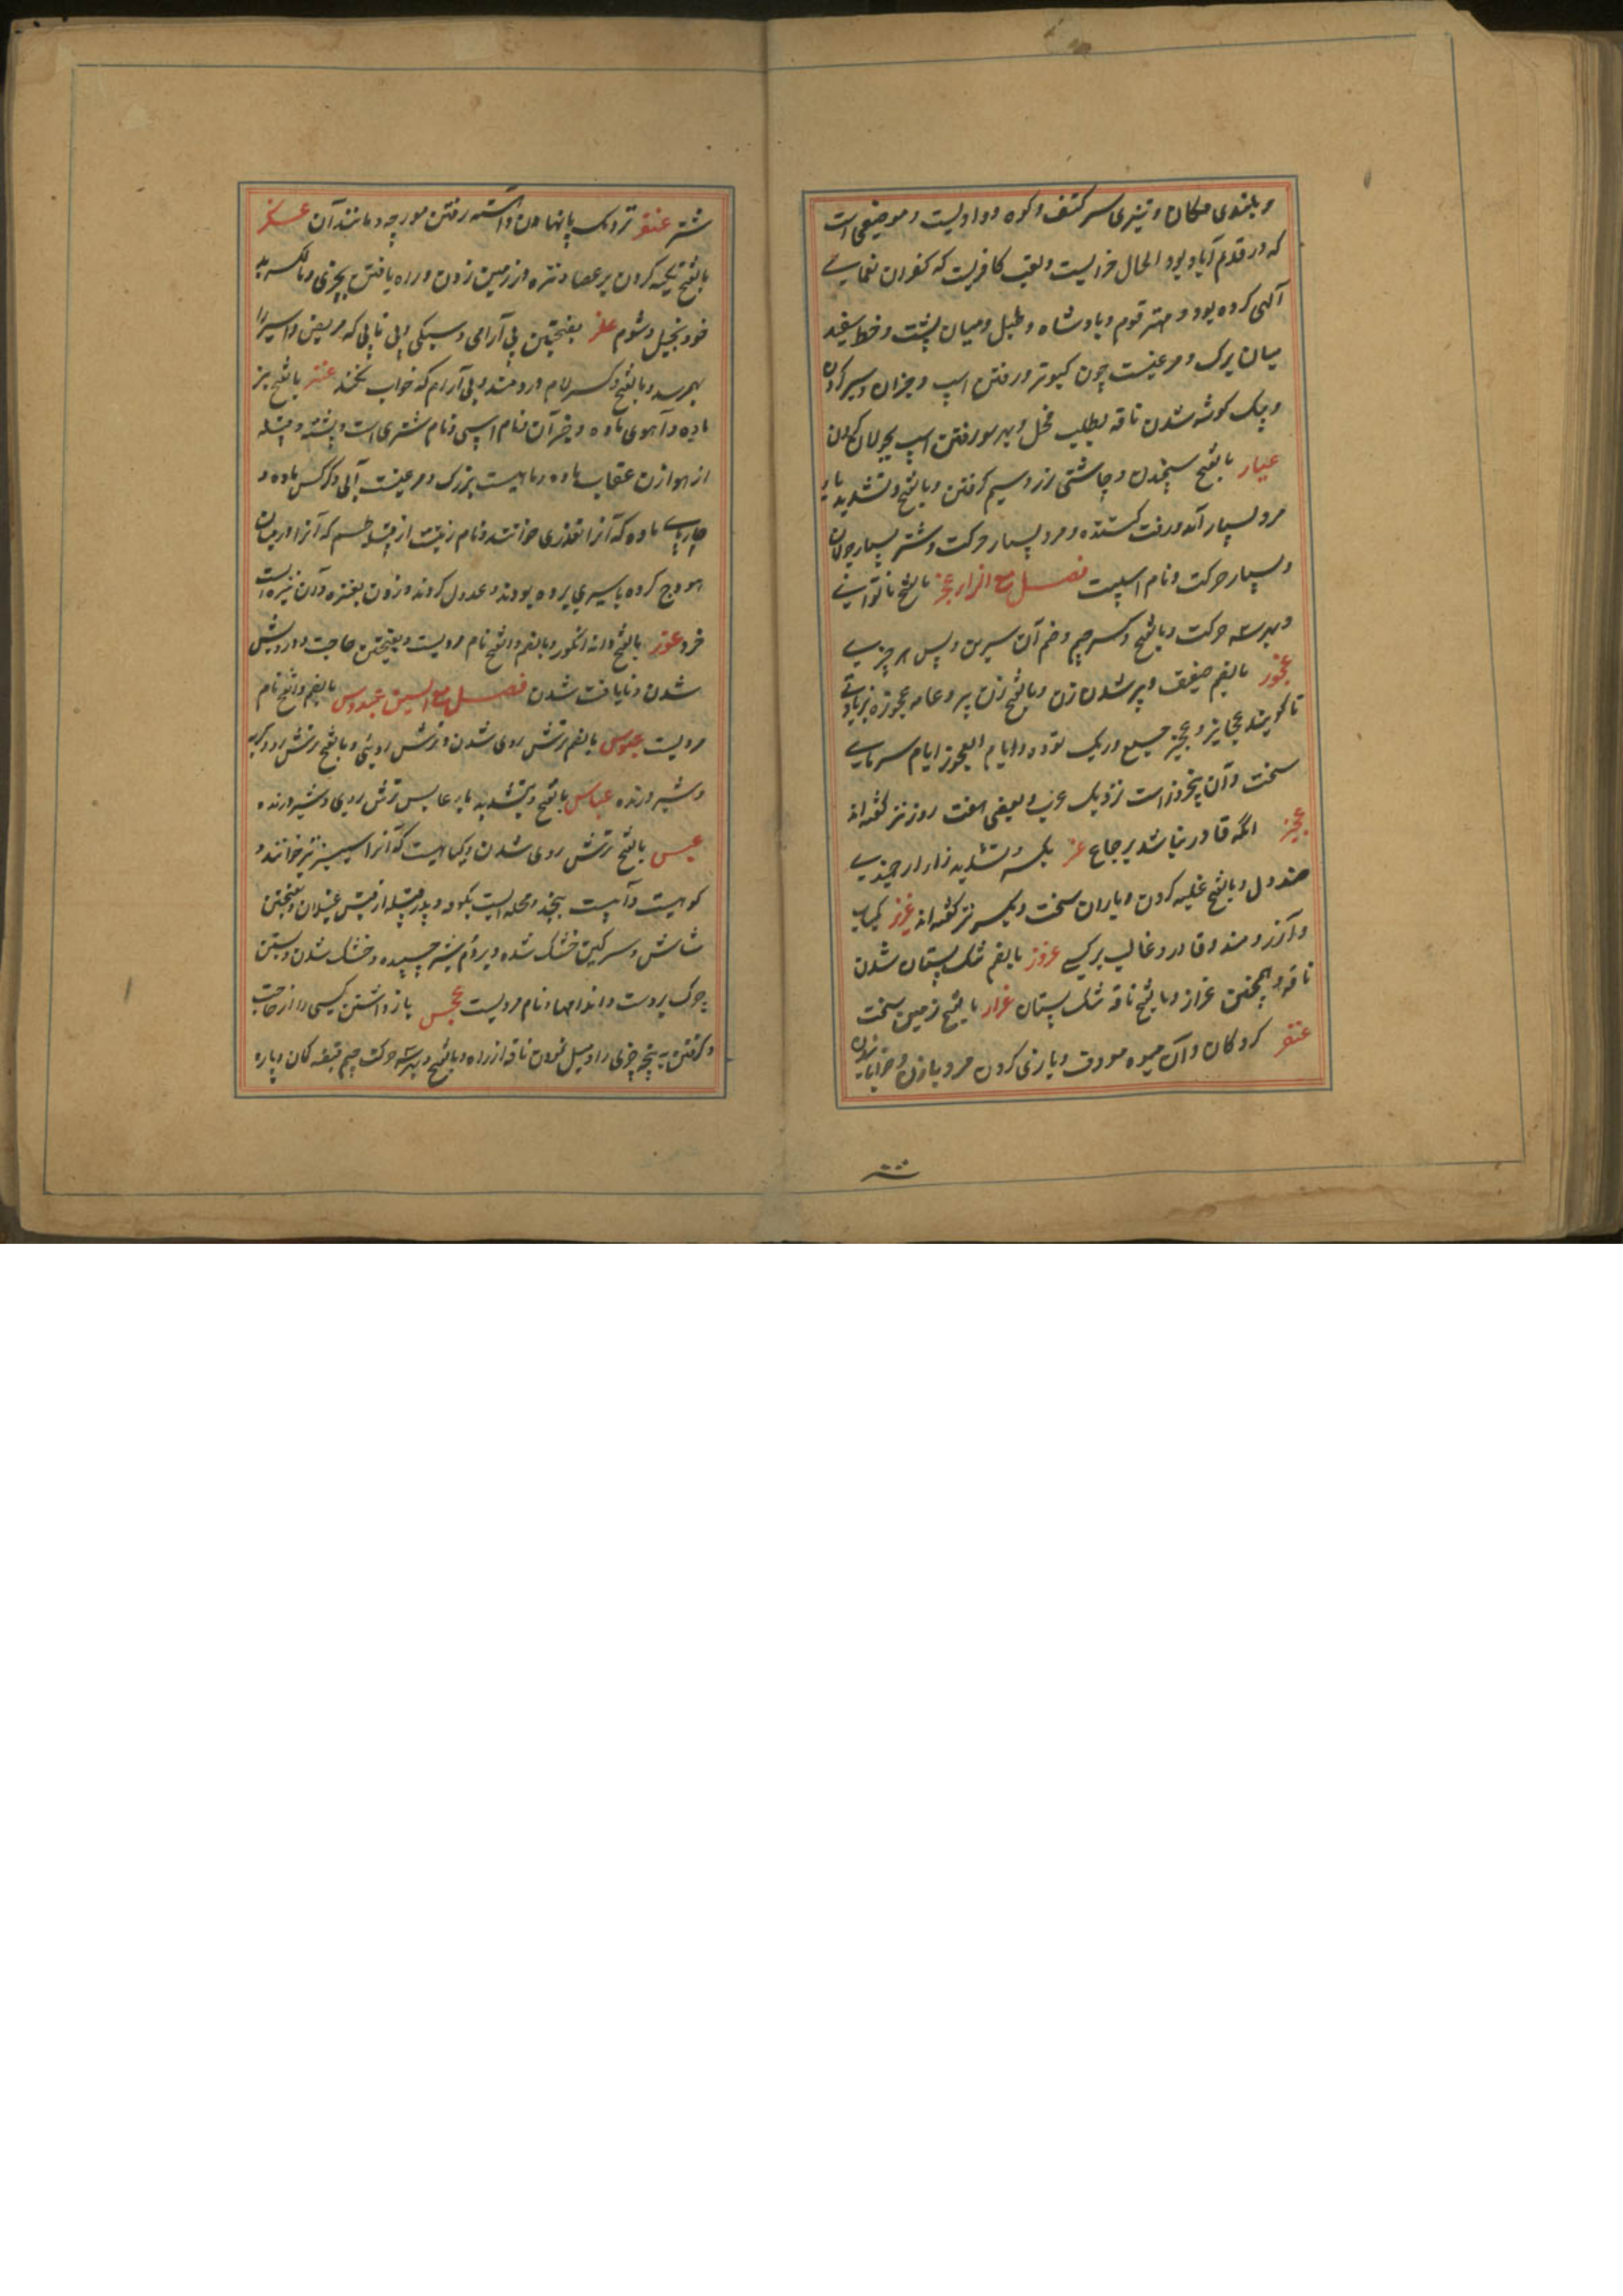 و بلندی مکان و تیزی سر کتف و کوه و وادیست و موضعی است
که در قدم آباد بود الحال خرابست و لقب کافریست که کفران نعمای
آلهی کرده بود و مهتر قوم و بادشاه و طبل و میان پشت و خط سفید
میان برک و مرغیست چون کبوتر و رفتن اسپ و خزان و سیر کردن
و چک کوشه شدن ناقه بطلب فحل و بهر سو رفتن اسپ بجولان کردن
عیار بالفتح سنجیدن و چاشنی زر و سیم کرفتن و بالفتح و تشدید یا
مرد بسیار آمد و رفت کننده و مرد بسیار حرکت و شتر بسیار جولان
و بسیار حرکت و نام اسپیست فصل مع الزا عجز بالفتح ناتوانی
و بهر سه حرکت و بالفتح و کسر جیم و ضم آن سرین و پس هر چیزی
عجوز بالضم ضعیف و پیر شدن زن و بالفتح زن پیر و عامه عجوزه بزیادتی
تا کویند عجایز و عجز جمع و ریک توده و ایام العجوز ایام سرمای
سخت و آن پنجروز است نزدیک عرب و بعضی هفت روز نیز کفته اند
عجیز انکه قادر نباشد بر جماع عز بکسر و تشدید زا
و بالفتح غلبه کردن و باران سخت و بکسر نیز کفته اند عزیز کمیاب
و ارزومند و قادر و غالب بر کسی عزوز بالضم تنک پستان شدن
ناقه و همچنین عزاز و بالفتح ناقه تنک پستان عزاز بالفتح زمین سخت
کردکان و آن میوه معروف و بازی کردن مرد با زن
شتر عنقز نزدیک پا نهادن و آهسته رفتن مورچه و مانند آن
بالفتح تکیه کردن بر عصا و نیزه و بر زمین زدن و راه یافتن بچیزی و بالکسر بد
خو و بخیل و شوم علز بفتحتین بی آرامی و سبکی و بی تابی که مریض و اسیر را
بهم رسد و بالفتح و کسر لام دردمند و بی آرام که خواب نکند عنز بالفتح بز
ماده و آهوی ماده و جز آن و نام اسپی و نام شتری است و پشته و قبیله
از هوازن و عقاب ماده و ماهیست بزرک و مرغیست آبی و کرکس ماده و
ماده که آنرا خوانند و نام زنیست از قبیله طسم که آنرا در میان
هودج کرده باسیری برده بودند و عدول کردن و زدن بعنزه و آن نیزه ایست
خرد عنوز بالفتح دانه انکور و بالضم و الفتح نام مردیست و بفتحتین حاجت و درویش
شدن و نایافت شدن فصل مع السین عبدوس بالضم و الفتح نام
مردیست عبوس بالضم ترش روی شدن و ترش روئی و بالفتح ترش رو
و شیر درنده عباس بالفتح و تشدید با و عابس ترش روی و شیر درنده
عبس بالفتح ترش روی شدن و کیاهیست که آنرا سیسنبر خوانند و
کوهیست و آبیست بنجد و محله ایست بکوفه و پدر قبیله از قیس عیلان و بفتحتین
شاش و سرکین خشک شده و بر دم شتر چسپیده و خشک شدن و بستن
چرک بر دست و اندامها و نام مردیست عجس باز داشتن کسی را از حاجت
و کرفتن به پنجه چیزی را و میل نمودن ناقه از راه و بالفتح و بهر سه حرکت جیم قبضه کمان و پاره